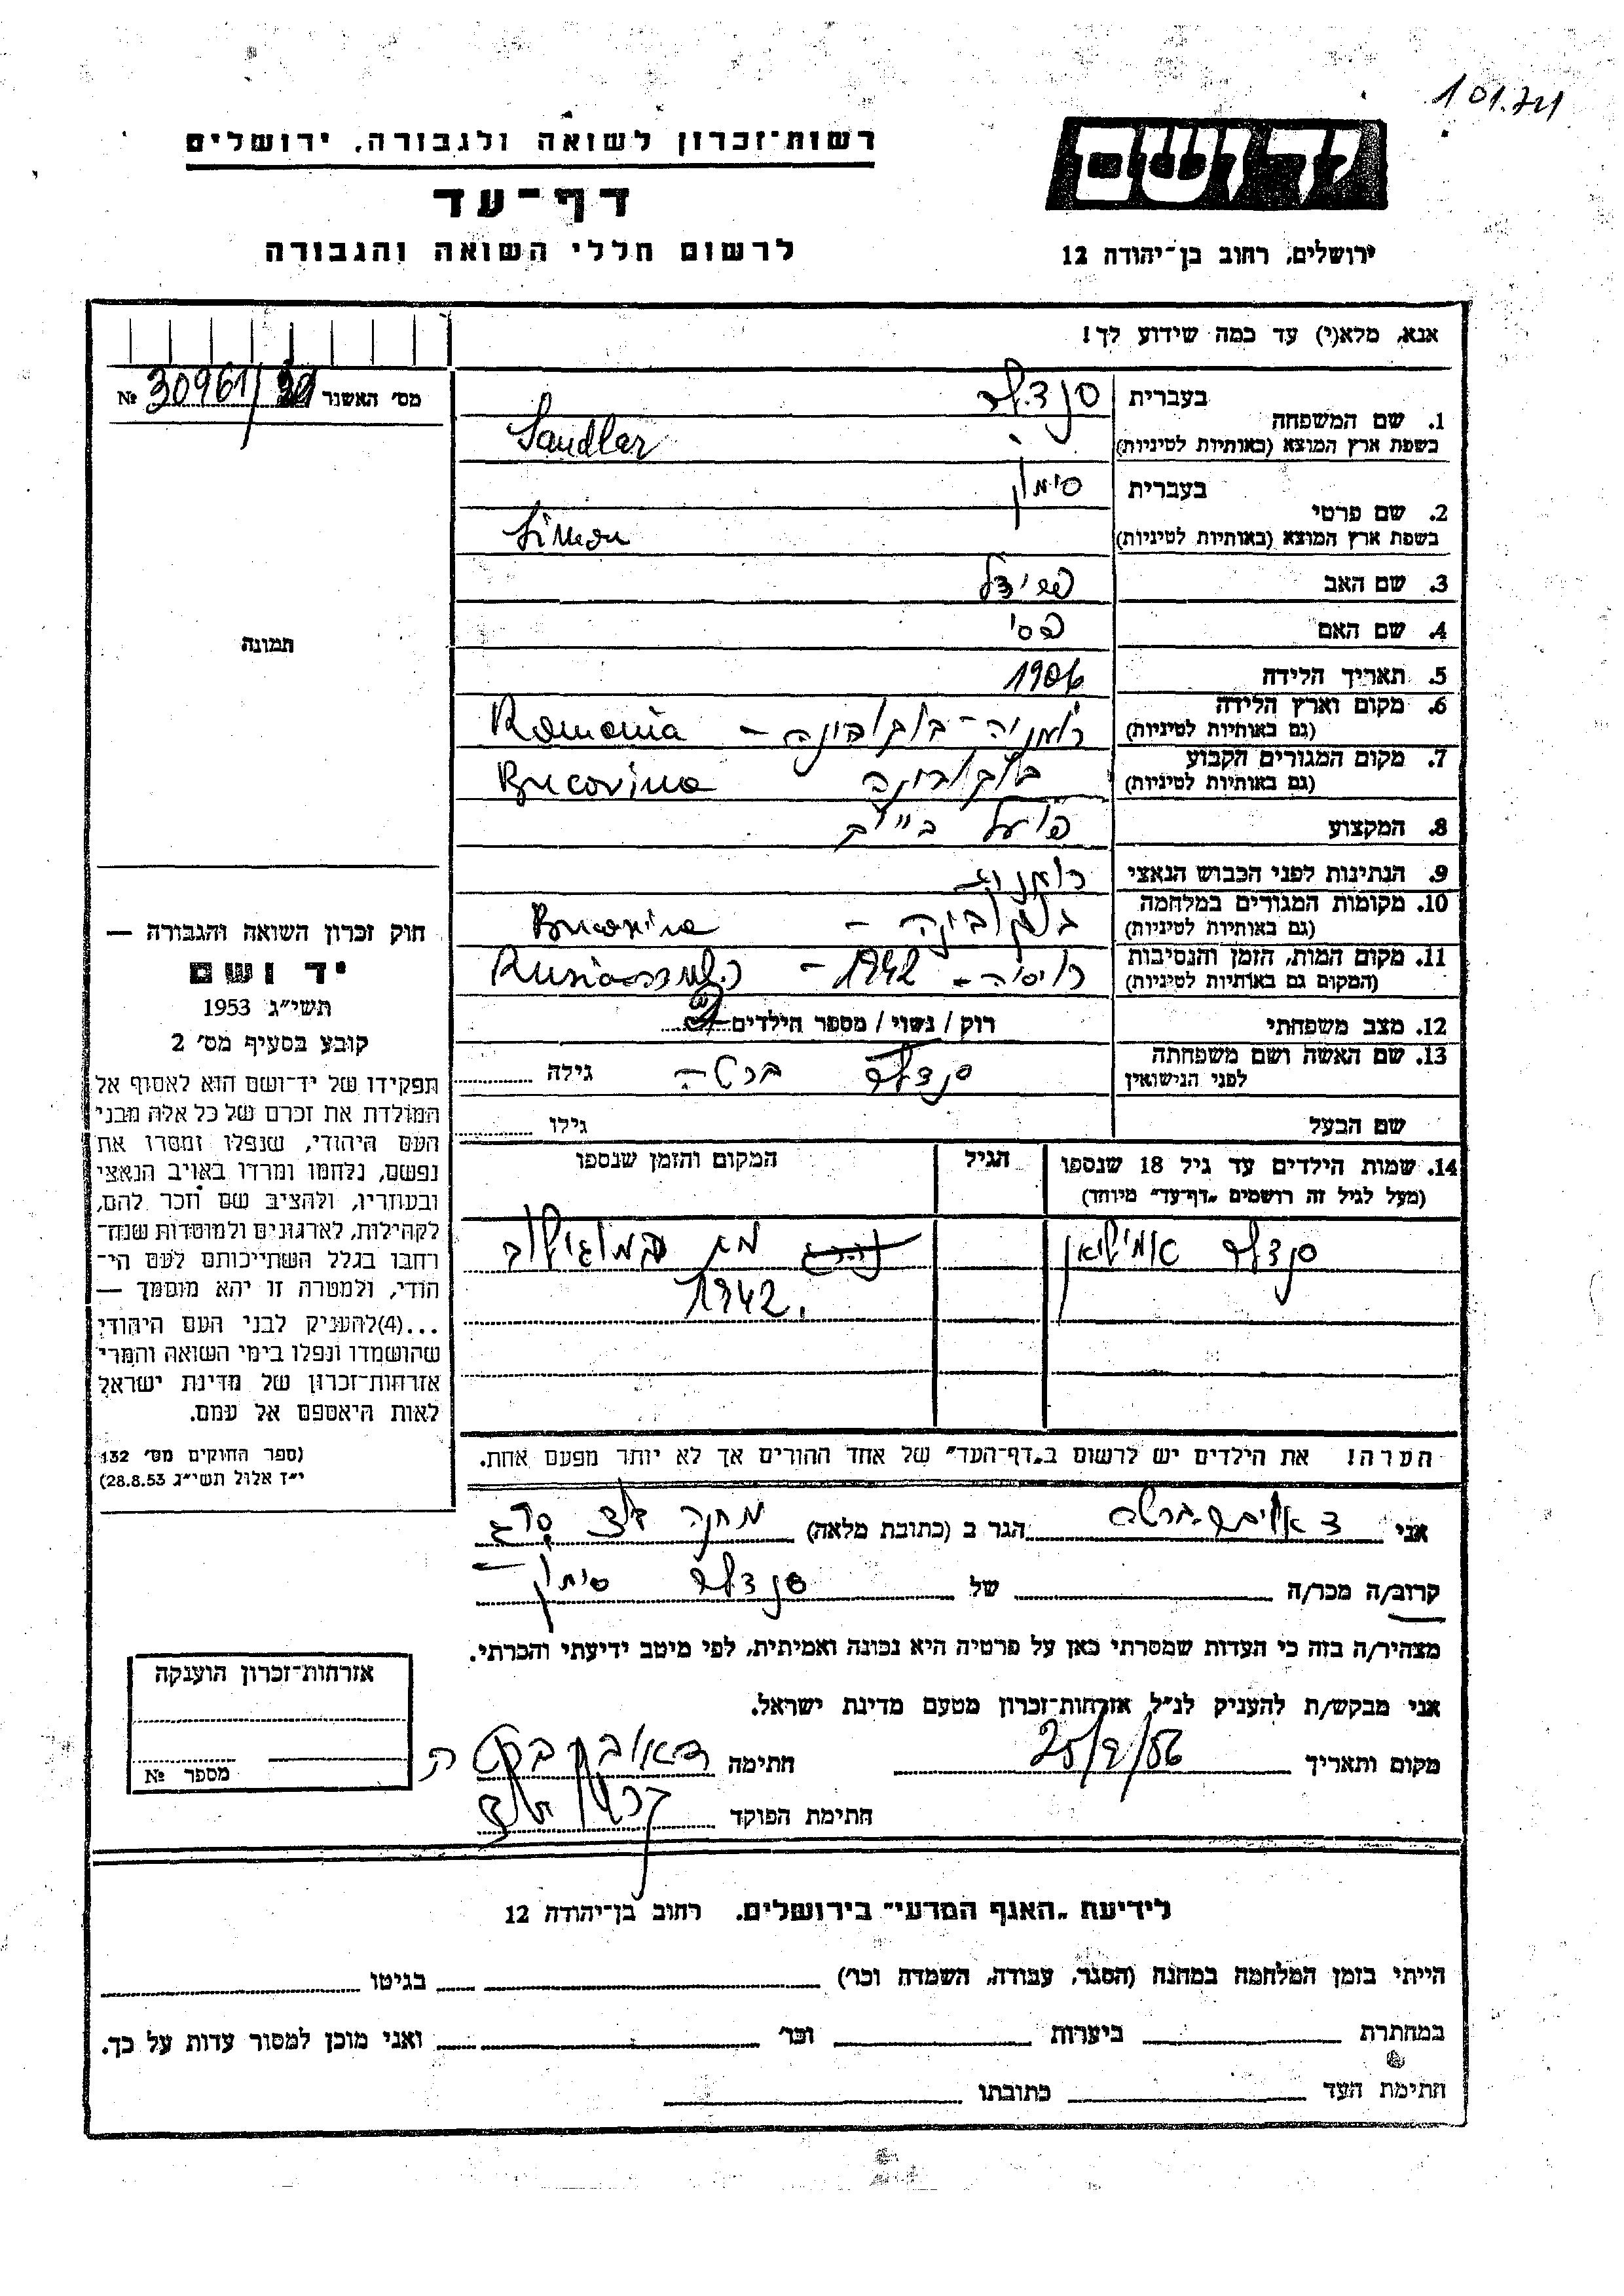 101.741
רשות־זכרון לשואה ולגבורה, ירושלים
דף־עד
לרשום חללי השואה והגבורה
יד ושם
ירושלים, רחוב בן־יהודה 12
אנא, מלא(י) עד כמה שידוע לך!
מס׳ האשנר № 30961/
1. שם המשפחה
בעברית סנדלר
בשפת ארץ המוצא (באותיות לטיניות) Sandler
2. שם פרטי
בעברית סימון
בשפת ארץ המוצא (באותיות לטיניות) Simon
3. שם האב
4. שם האם פסי
5. תאריך הלידה 1906
6. מקום וארץ הלידה (גם באותיות לטיניות) רומניה - בוקובינה - Romania
7. מקום המגורים הקבוע (גם באותיות לטיניות) בוקובינה Bucovina
8. המקצוע פועל
9. הנתינות לפני הכבוש הנאצי
10. מקומות המגורים במלחמה (גם באותיות לטיניות) בוקובינה - Bucovina
11. מקום המות, הזמן והנסיבות (המקום גם באותיות לטיניות) רוסיה - 1942 -
12. מצב משפחתי רווק / נשוי / מספר הילדים
13. שם האשה ושם משפחתה לפני הנישואין סנדלר ברטה גילה
שם הבעל גילו
14. שמות הילדים עד גיל 18 שנספו (מעל לגיל זה רושמים „דף־עד״ מיוחד) הגיל המקום והזמן שנספו
סנדלר אמיליאן מת במוגילוב
1942.
הערה! את הילדים יש לרשום ב„דף־העד״ של אחד ההורים אך לא יותר מפעם אחת.
תמונה
חוק זכרון השואה והגבורה —
יד ושם
תשי״ג 1953
קובע בסעיף מס׳ 2
תפקידו של יד־ושם הוא לאסוף אל
המולדת את זכרם של כל אלה מבני
העם היהודי, שנפלו ומסרו את
נפשם, נלחמו ומרדו באויב הנאצי
ובעוזריו, ולהציב שם וזכר להם,
לקהילות, לארגונים ולמוסדות שנח־
רבו בגלל השתייכותם לעם הי־
הודי, ולמטרה זו יהא מוסמך —
...(4)להעניק לבני העם היהודי
שהושמדו ונפלו בימי השואה והמרי
אזרחות־זכרון של מדינת ישראל
לאות היאספם אל עמם.
(ספר החוקים מס׳ 132
י״ז אלול תשי״ג 28.8.53)
אני הגר ב (כתובת מלאה) מחנה
קרוב/ה מכר/ה של סנדלר סימון
מצהיר/ה בזה כי העדות שמסרתי כאן על פרטיה היא נכונה ואמיתית, לפי מיטב ידיעתי והכרתי.
אני מבקש/ת להעניק לנ״ל אזרחות־זכרון מטעם מדינת ישראל.
מקום ותאריך 25/2/56 חתימה
חתימת הפוקד
אזרחות־זכרון הוענקה
מספר №
לידיעת „האגף המדעי״ בירושלים. רחוב בן־יהודה 12
הייתי בזמן המלחמה במחנה (הסגר, עבודה, השמדה וכו׳) בגיטו
במחתרת ביערות וכו׳ ואני מוכן למסור עדות על כך.
חתימת העד כתובתו